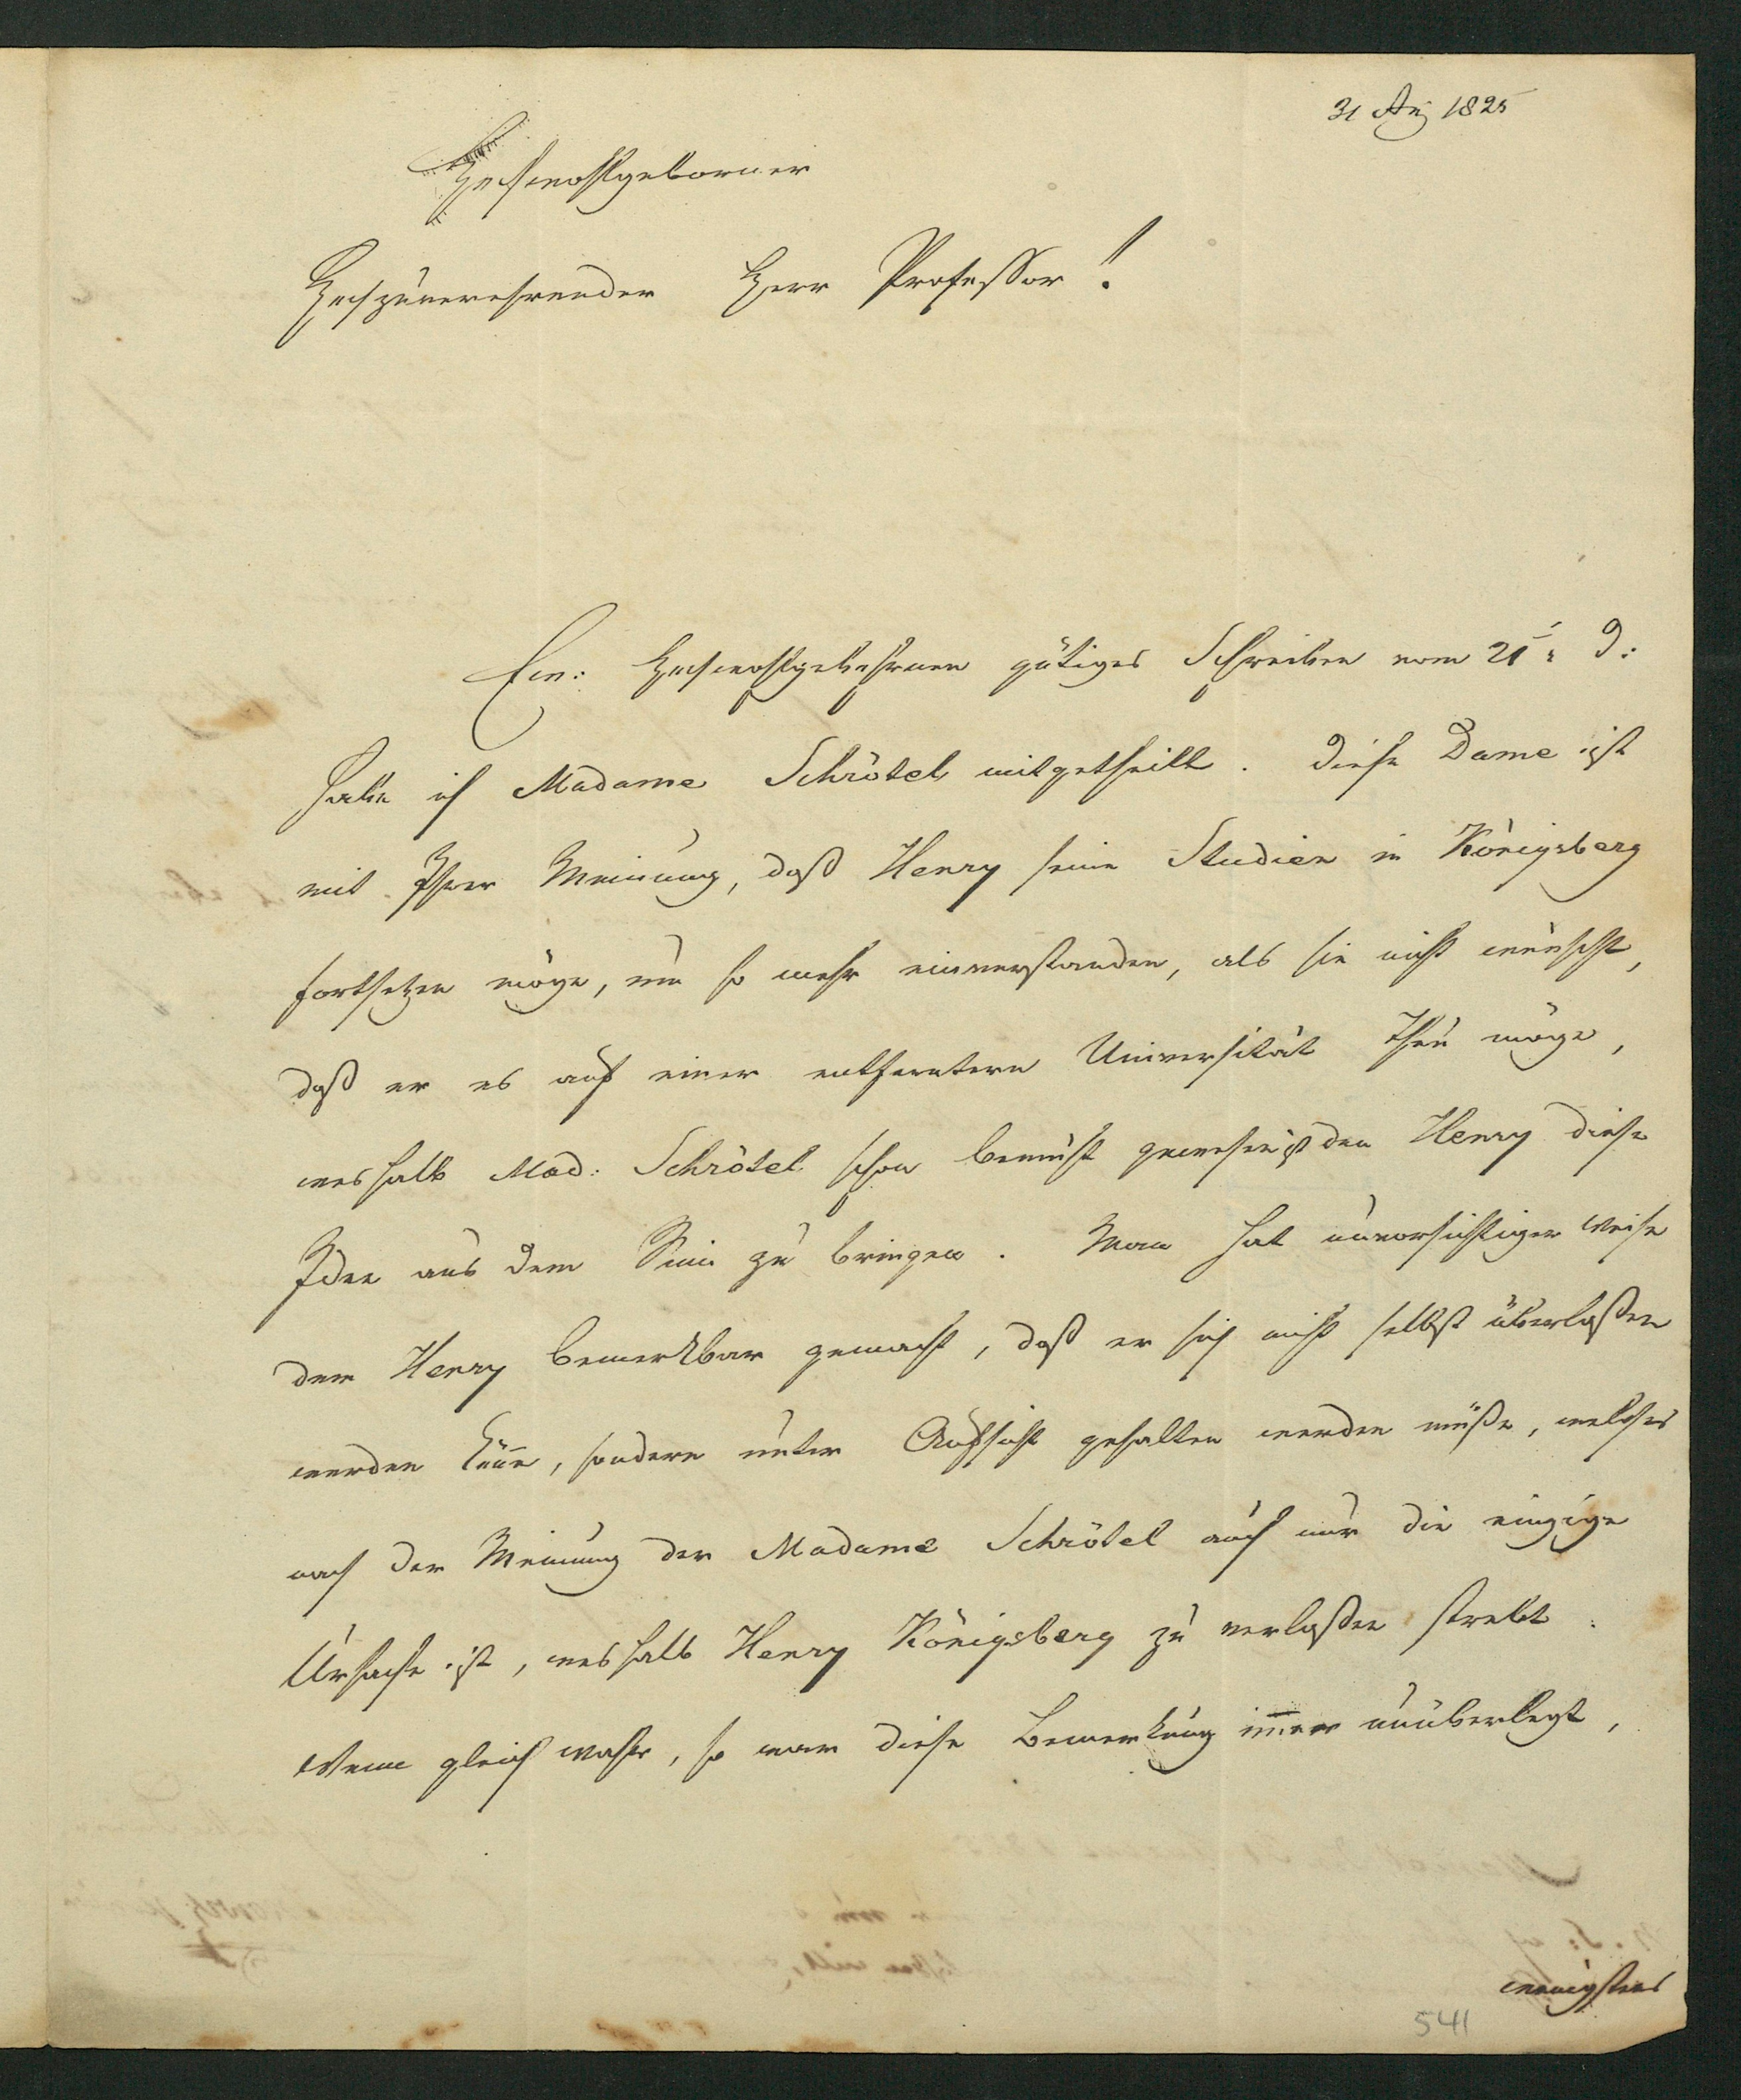 31 Aug 1825
Hochwohlgeborner
Hochzuverehrender Herr Professor!
Ew: Hochwohlgebohren gütiges Schreiben vom 21t: d:
habe ich Madame Schrötel mitgetheilt. Diese Dame ist
mit Ihrer Meinung, daß Henry seine Studien in Königsberg
fortsetzen möge, um so mehr einverstanden, als sie nicht wünscht,
daß er es auf einer entferntern Universität thun möge,
weshalb Mad: Schrötel schon bemüht gewesen ist den Henry diese
Idee aus dem Sinn zu bringen. Man hat unvorsichtiger Weise
dem Henry bemerkbar gemacht, daß er sich nicht selbst überlaßen
werden könne, sondern unter Aufsicht gehalten werden müße, welches
nach der Meinung der Madame Schrötel auch nur die einzige
Ursache ist, weshalb Henry Königsberg zu verlaßen strebt.
Wenn gleich wahr, so war diese Bemerkung immer unüberlegt,
wenigstens
541